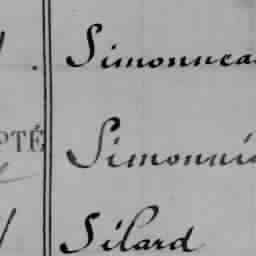 Simonnea
PTÉ Simonni
Silard